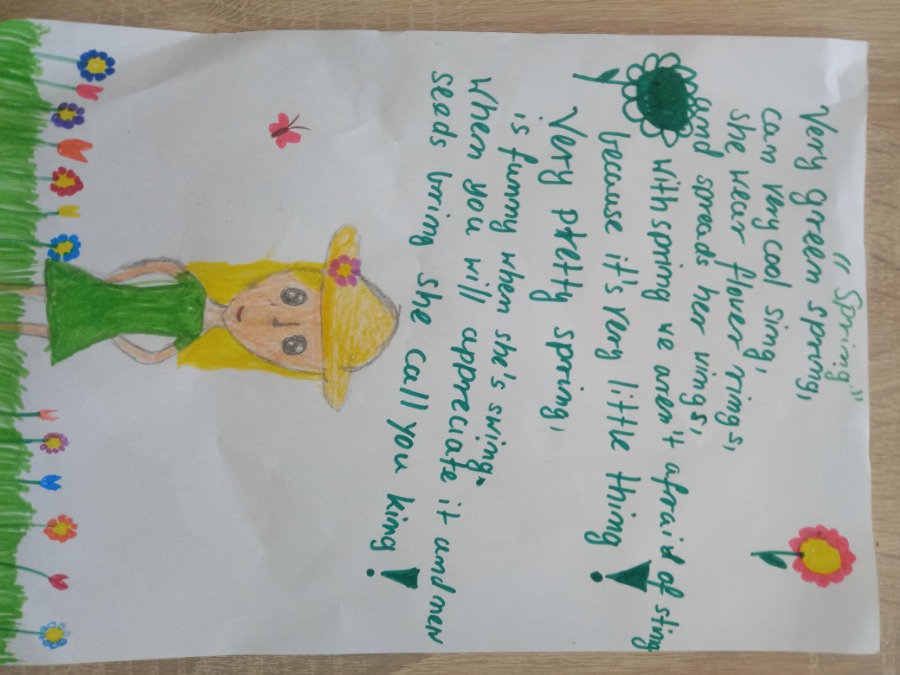 "Spring"
Very green spring,
can very cool sing,
she wear flower rings,
and spreads her wings,
with spring we aren't afraid of sting
because it's very little thing!
Very pretty spring,
is funny when she's swing.
When you will appreciate it and new
seeds bring she call you king!